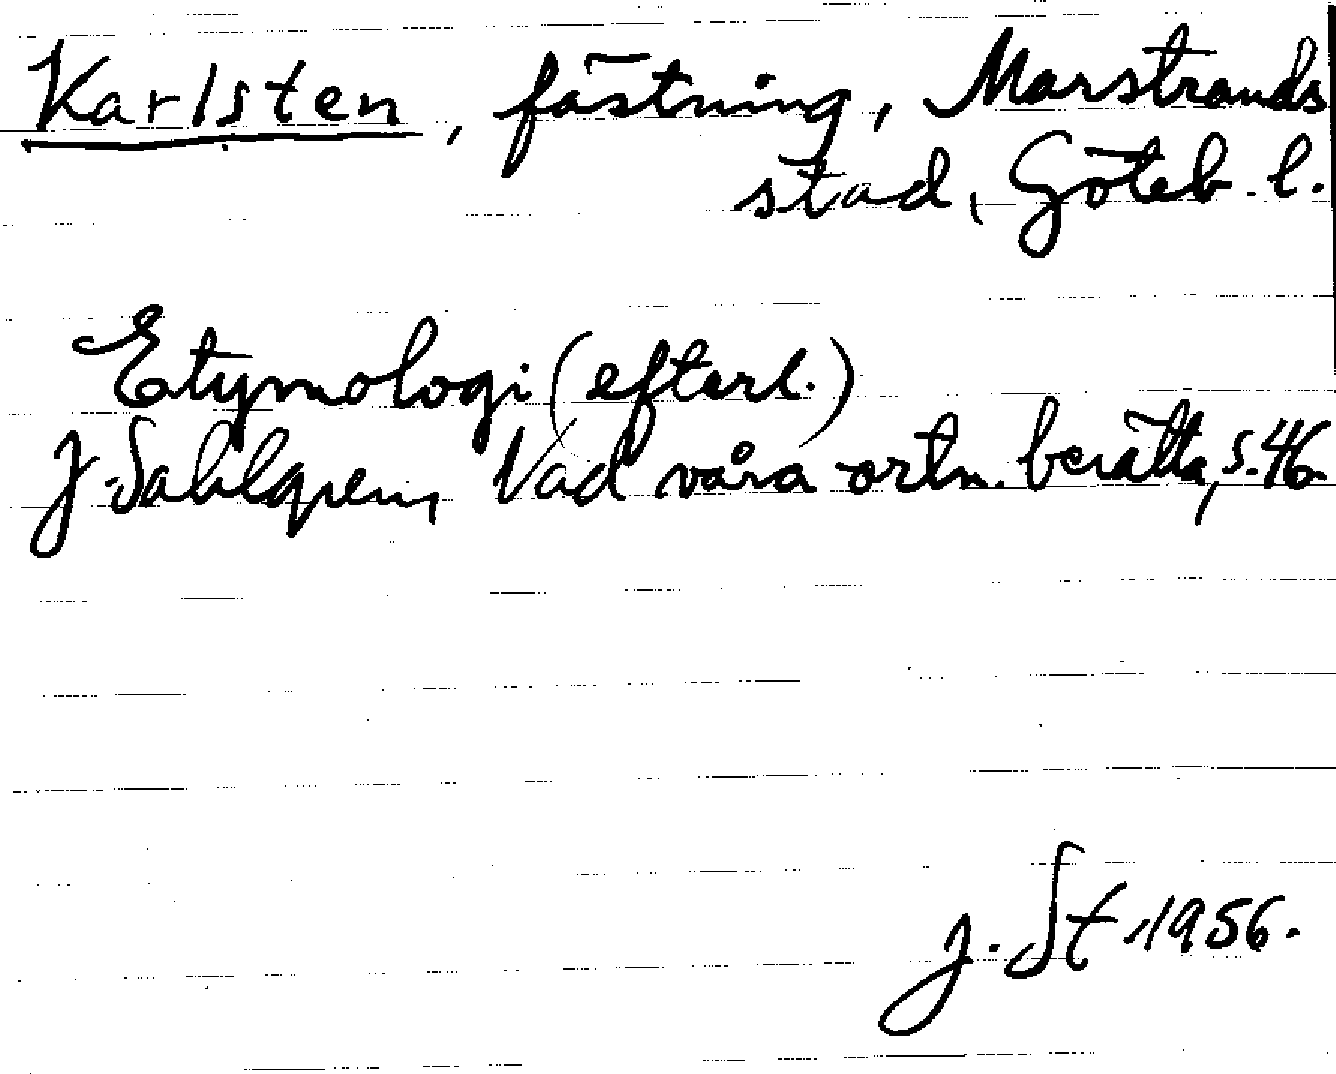 Karlsten, fästning, Marstrands
stad, Göteb. l.
Etymologi (efterl.)
J. Sahlgren, Vad våra ortn. berätta, s. 46.
J. St. 1956.